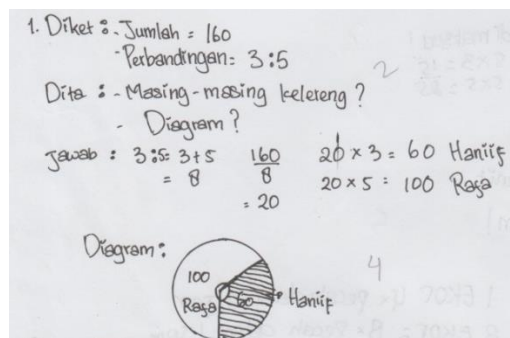 1. Diket : - Jumlah = 160
- Perbandingan = 3:5
2
Dita : - Masing-masing kelereng ?
- Diagram ?
Jawab : 3:5 = 3+5 160 20 × 3 = 60 Haniif
= 8 8 20 × 5 = 100 Rafa
= 20
Diagram :
4
100
Rafa 60 Haniif